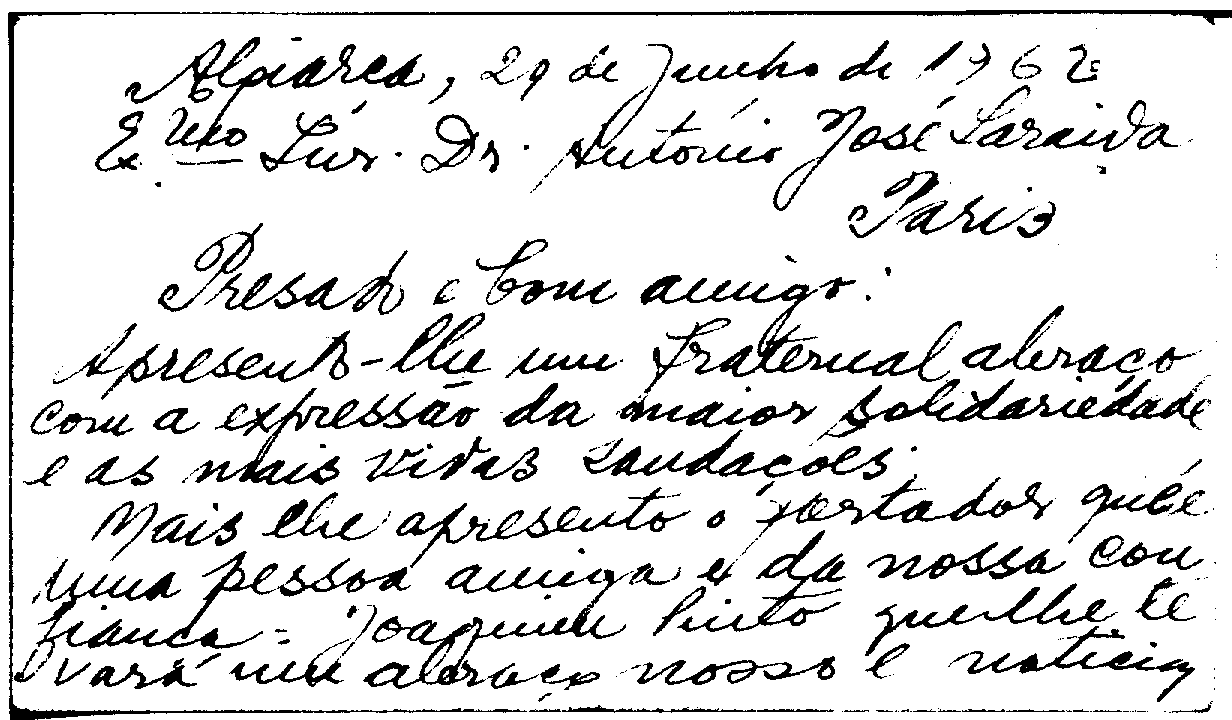 Alpiarça, 29 de Junho de 1962
Ex.mo Snr. Dr. António José Saraiva
Paris
Presado e bom amigo:
Apresento-lhe um fraternal abraço
com a expressão da maior solidariedade
e as mais vivas saudações.
Mais lhe apresento o portador que é
uma pessoa amiga e da nossa con
fiança - Joaquim Pinto que lhe le
vará um abraço nosso e noticias